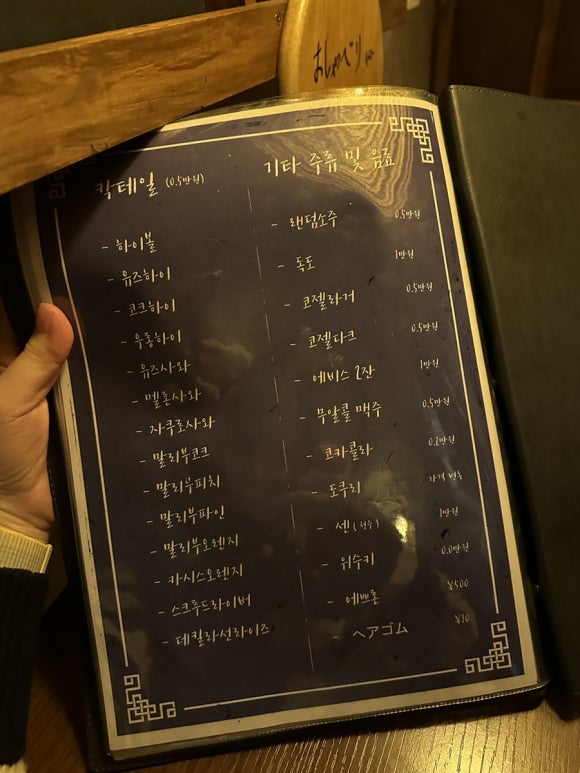 おしゃべり
칵테일 (0.5만원)
- 하이볼
- 유즈하이
- 코크하이
- 우롱하이
- 유즈사와
- 멜론사와
- 자쿠로사와
- 말리부코크
- 말리부피치
- 말리부파인
- 말리부오렌지
- 카시스오렌지
- 스크루드라이버
- 데킬라선라이즈
기타 주류 및 음료
- 랜덤소주 0.5만원
- 독도 1만원
- 코젤라거 0.5만원
- 코젤다크 0.5만원
- 에비스 2잔 1만원
- 무알콜 맥주 0.5만원
- 코카콜라 0.2만원
- 도쿠리 가격 변동
- 센 1만원
- 위수키 0.0만원
- 에쁘톤 ¥500
- ヘアゴム ¥10